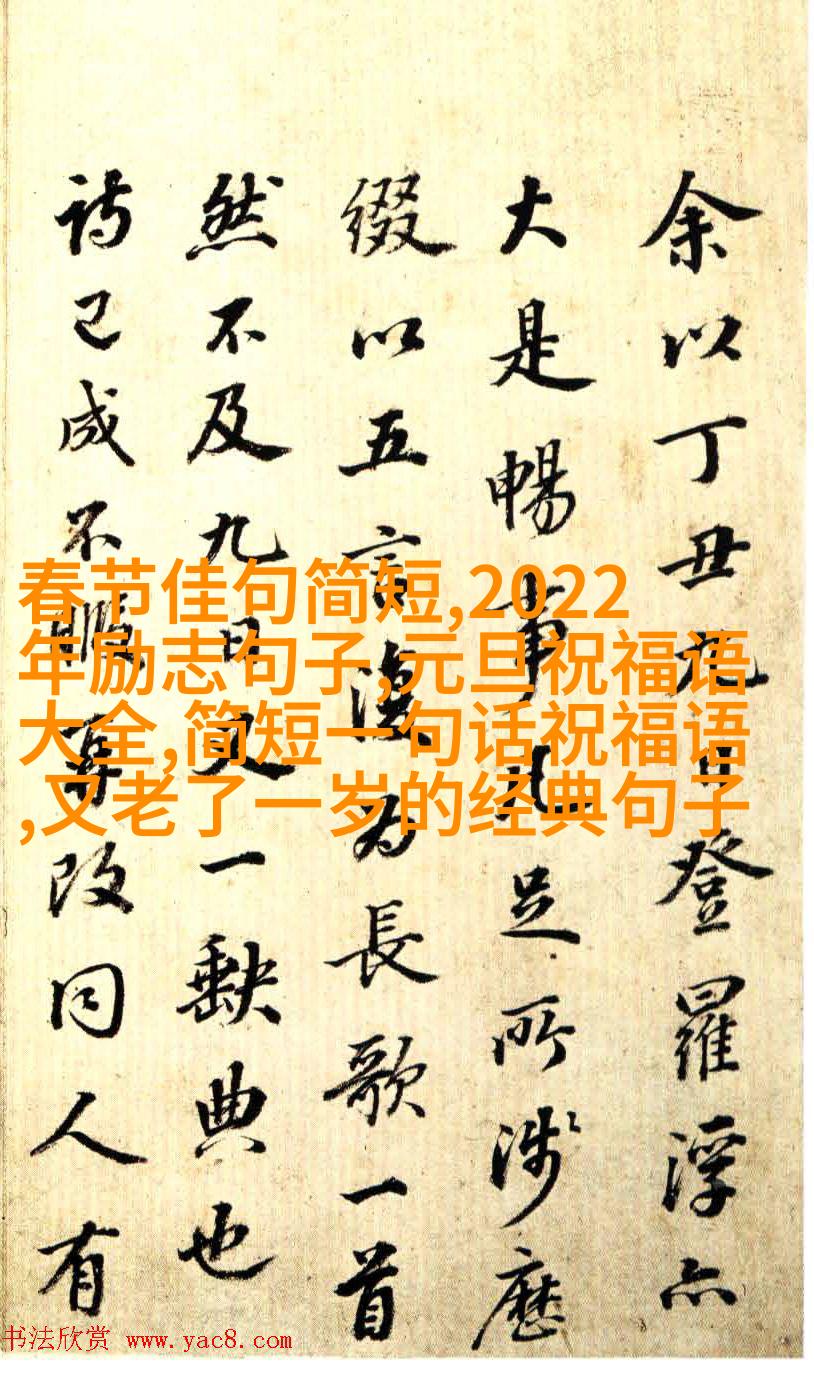 余以丁丑九日登羅浮亦
大是暢事凡足所涉歷
綴以五言復為長歌一首
然不及九日又一缺典也
詩已成不暇算改同人有
春节佳句简短,2022
年励志句子,元旦祝福语
大全,简短一句话祝福语
,又老了一岁的经典句子
书法欣赏 www.yac8.com